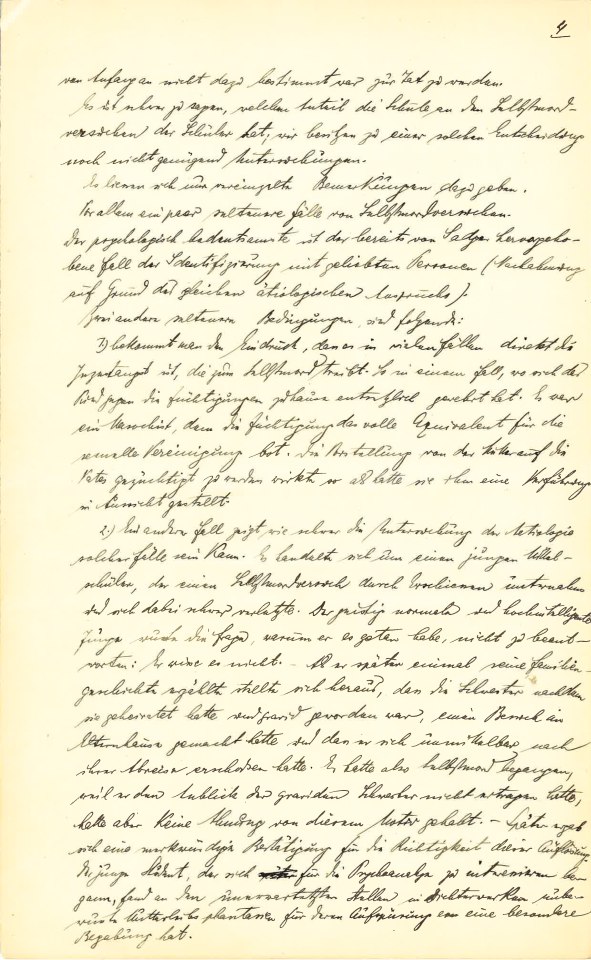 4
von Anfang an nicht dazu bestimmt war zur Tat zu werden.
Es ist schwer zu sagen, welchen Anteil die Schule an den Selbstmord-
versuchen der Schüler hat; wir besitzen zu einer solchen Entscheidung
noch nicht genügend Untersuchungen.
Es liessen sich nur vereinzelte Bemerkungen dazu geben.
Vor allem ein paar seltenere Fälle von Selbstmordversuchen.
Der psychologisch bedeutsamste ist der bereits von Sadger hervorgeho-
bene Fall der Identifizierung mit geliebten Personen (Nachahmung
auf Grund des gleichen ätiologischen Anspruchs).
Zwei andere seltenere Bedingungen sind folgende:
1) bekommt man den Eindruck, dass es in vielen Fällen direkt die
Inzestangst ist, die zum Selbstmord treibt. So in einem Fall, wo sich das
Kind gegen die Züchtigungen zuhause entsetzlich gewehrt hat. Es war
ein Masochist, dem die Züchtigung das volle Equivalent für die
sexuelle Vereinigung bot. Die Vorstellung von der Mutter auf die
Vaters gezüchtigt zu werden wirkte so als hätte sie ihm eine Verführung
in Aussicht gestellt.
2.) Ein anderer Fall zeigt, wie schwer die Untersuchung der Aetiologie
solcher Fälle sein kann. Es handelte sich um einen jungen Mittel-
schüler, der einen Selbstmordversuch durch Erschiessen unternahm
und sich dabei schwer verletzte. Der geistig normale und hochintelligente
Junge wusste die Frage, warum er es getan habe, nicht zu beant-
worten: Er wisse es nicht. – Als er später einmal seine Familien-
geschichte erzählte stellte sich heraus, dass die Schwester nachdem
sie geheiratet hatte und gravid geworden war, einen Besuch im
Elternhause gemacht hatte und dass er sich unmittelbar nach
ihrer Abreise erschossen hatte. Er hatte also Selbstmord begangen,
weil er den Anblick der graviden Schwester nicht ertragen hatte,
hatte aber keine Ahnung von diesem Motiv gehabt. – Später ergab
sich eine merkwürdige Bestätigung für die Richtigkeit dieser Auflösung:
Der junge Student, der sich für die Psychoanalyse zu interessieren be-
gann, fand an den unerwartetsten Stellen in Dichterwerken unbe-
wusste Mutterleibsphantasien für deren Aufspürung er eine besondere
Begabung hat.